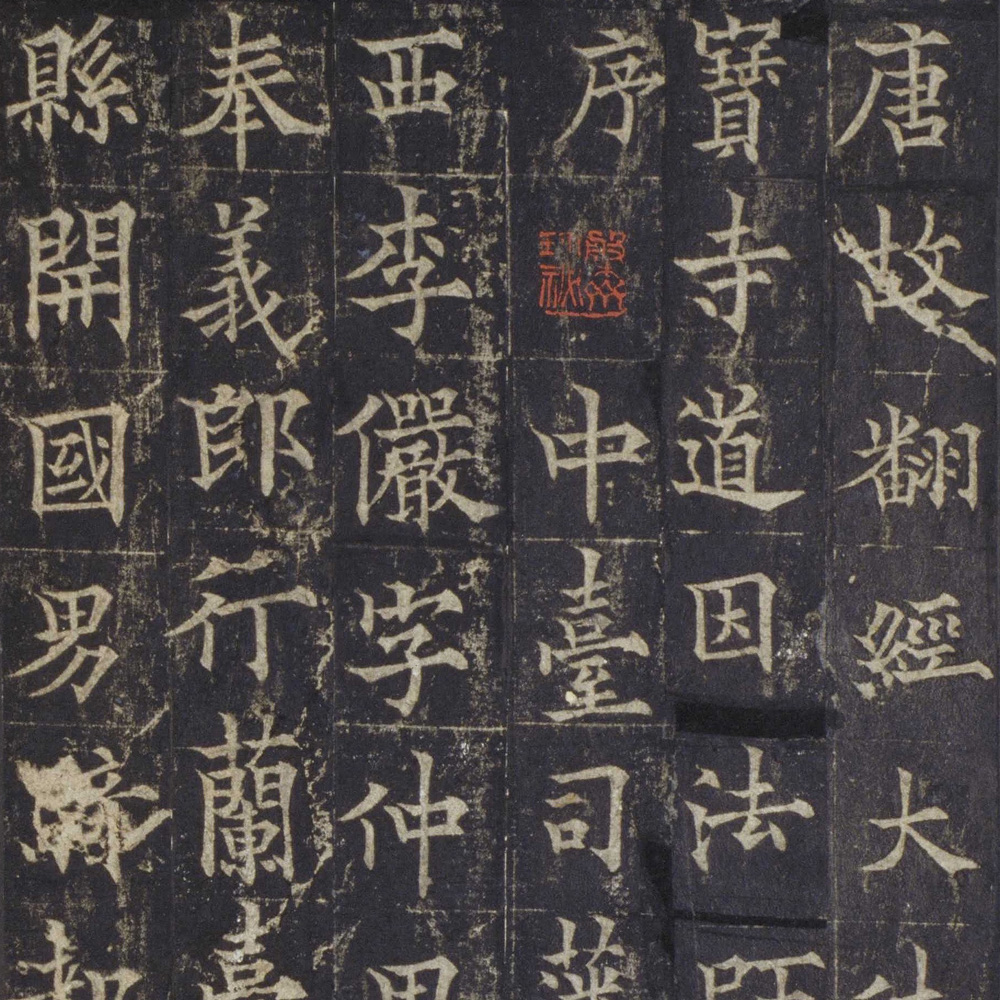 唐故翻經大
寶寺道因法師
序中臺司
西李儼字仲
奉義郎行蘭臺
縣開國男